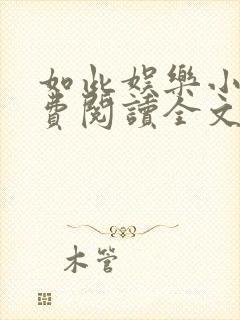 如此娱樂小
費閱讀全文
木管